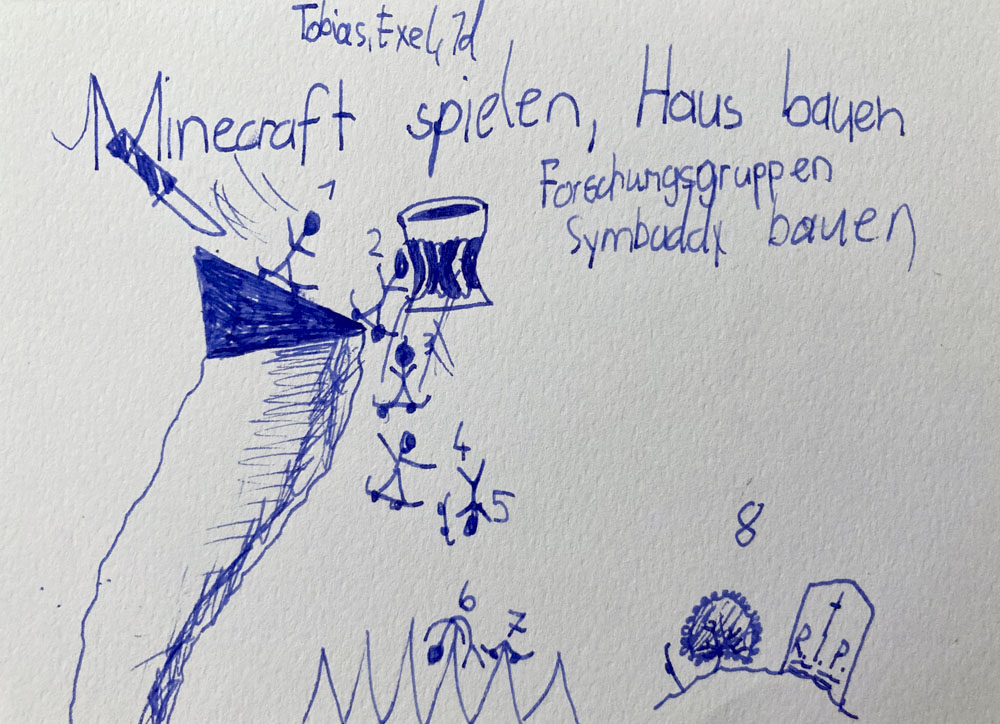 Tobias, Exel, 7d
Minecraft spielen, Haus bauen
Forschungsgruppen
Symbaddx bauen
1
2
3
4
5
6
7
8
R.I.P.